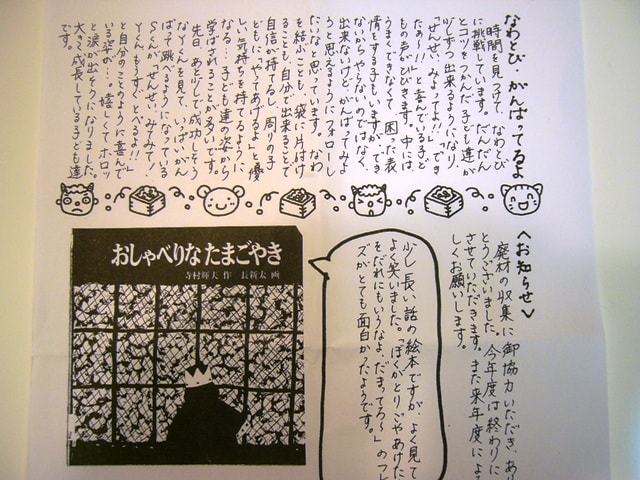 なわとび・がんばってるよ
時間を見つけて、なわとび
に挑戦しています。だんだん
とコツをつかんだ子ども達が
少しずつ出来るようになり、
「ぜんせぇ、みよってよ!!」「でき
たぁ〜!!」と喜んでいる子ど
もの声がひびきます。中には、
うまくできなくて、困った表
情をする子もいますが、でき
ないからやらないのではなく、
出来ないけど、がんばってみよ
うと思えるようにフォローし
たいなと思っています。なわ
を結ぶことも、袋に片付け
ることも、自分で出来ることで
自信が持てるし、周りの子
どもに「やってあげるよ」と優
しい気持ちを持てるように
なる…子ども達の姿から
学ばされることが多いです。
先日、あと少しで成功しそう
くんを見て、いっぱいがん
ばって跳べるようになっている
Sくんが「ぜんせぇ、みてみて!
Yくんもうすぐとべるよ!!」
と自分のことのように喜んで
いる姿の…。嬉しくて、ホロッ
と涙が出そうになりました。
大きく成長している子ども達
です。
<お知らせ>
廃材の収集に御協力いただき、あり
とうございました。今年度は終わりに
させていただきます。また来年度によろ
しくお願いします。
少し長い話の絵本ですが、よく見て
よく笑いました。「ぼくがとりごやあけた
そだれにもいうなよ、だまってろ〜」のフレ
ズがとても面白かったようです。
おしゃべりなたまごやき
寺村輝夫 作 長新太 画